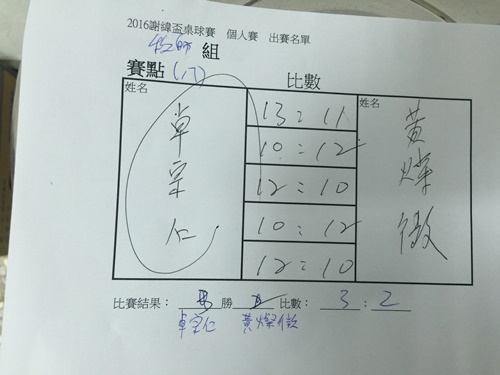 2016謝緯盃桌球賽 個人賽 出賽名單
牧師 組
賽點(17)
比數
姓名
卓宗仁
13：11
10：12
12：10
10：12
12：10
姓名
黃燦徵
比賽結果： 勝 比數：3：2
卓宗仁 黃燦徵